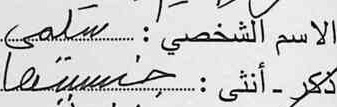 الاسم الشخصي : سلمى
ذكر - أنثى : جنسيتها